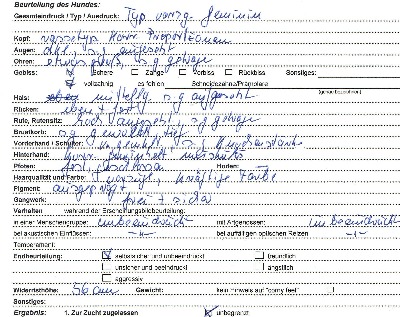 Beurteilung des Hundes:
Gesamteindruck / Typ / Ausdruck: Typ vorzgl. feminin
Kopf: rassetyp. Korr. Proportionen
Augen: dkl., s.g. angesetzt
Ohren: etwas groß, s.g. getragen
Gebiss: Schere Zange Vorbiss Rückbiss Sonstiges:
vollzahnig es fehlen Schneidezähne/Prämolare
(genau bezeichnen)
Hals: s.g. aufgesetzt
Rücken: eben + fest
Rute, Rutensitz: hoch angesetzt, s.g. getragen
Brustkorb: s.g. gewölbt, tief
Vorderhand / Schulter:
Hinterhand: korr. gewinkelt
Pfoten: fest geschlossen Hoden:
Haarqualität und Farbe: vorzügl., kräftige Farbe
Pigment: ausgeprägt
Gangwerk: frei +
Verhalten während der Erscheinungsbildbeurteilung:
in einer Menschengruppe: unbeeindruckt mit Artgenossen: unbeeindruckt
bei akustischen Einflüssen: -"- bei auffälligen optischen Reizen -"-
Temperament:
Endbeurteilung: selbstsicher und unbeeindruckt freundlich
unsicher und beeindruckt ängstlich
aggressiv
Widerristhöhe: 56 cm Gewicht: kein Hinweis auf "corny feet"
Sonstiges:
Ergebnis: 1. Zur Zucht zugelassen unbegrenzt